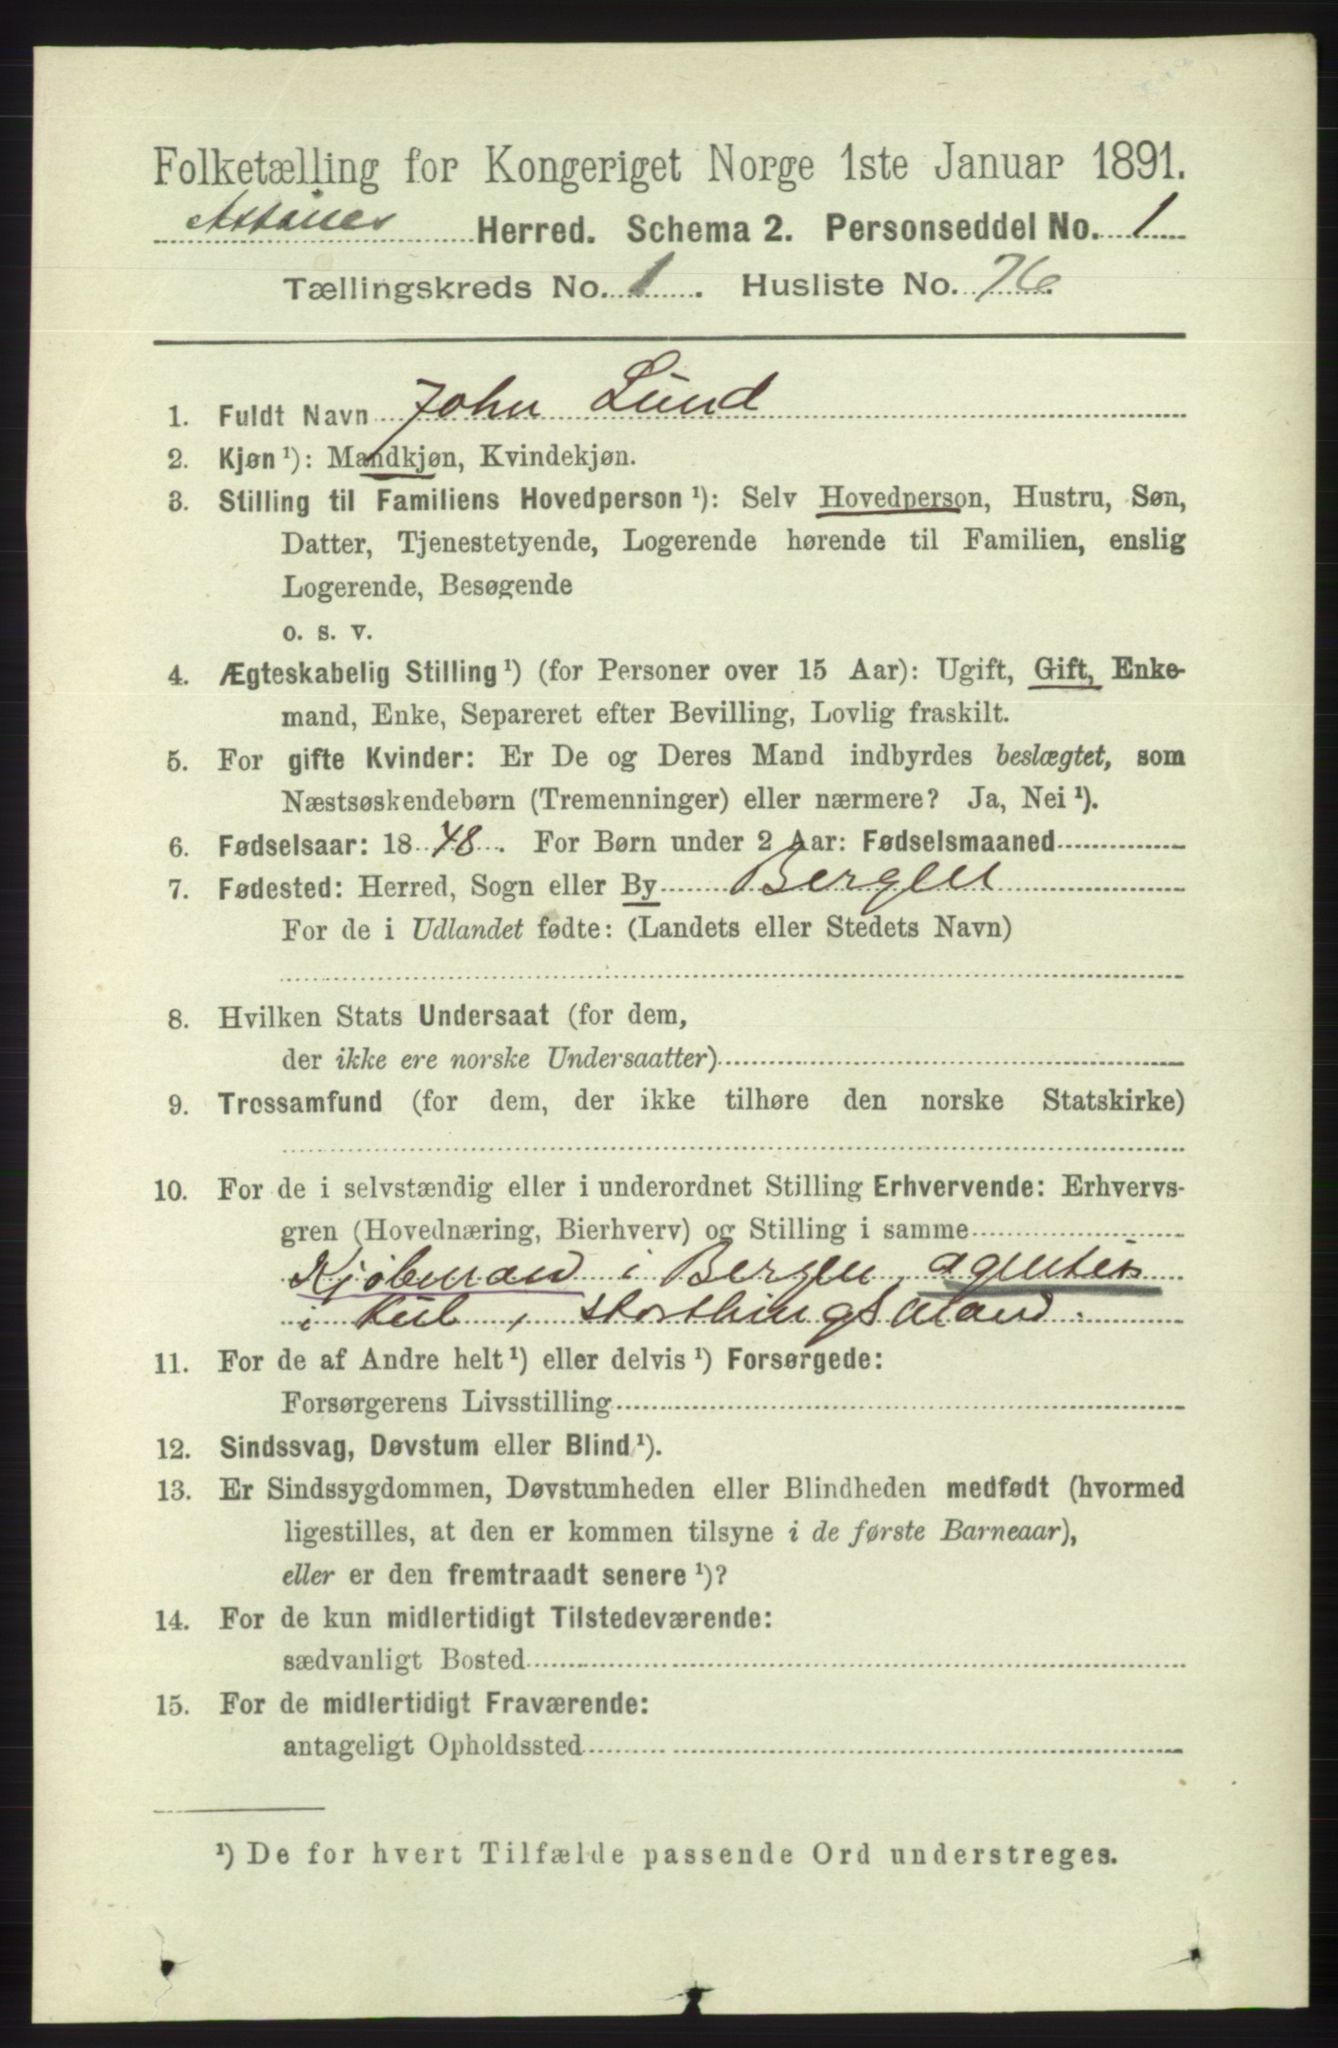 Folketælling for Kongeriget Norge 1ste Januar 1891.
Herred. Schema 2. Personseddel No. 1
Tællingskreds No. 1. Husliste No. 76
1. Fuldt Navn John Lund
2. Kjøn ¹): Mandkjøn, Kvindekjøn.
3. Stilling til Familiens Hovedperson ¹): Selv Hovedperson, Hustru, Søn,
Datter, Tjenestetyende, Logerende hørende til Familien, enslig
Logerende, Besøgende
o. s. v.
4. Ægteskabelig Stilling ¹) (for Personer over 15 Aar): Ugift, Gift, Enke-
mand, Enke, Separeret efter Bevilling, Lovlig fraskilt.
5. For gifte Kvinder: Er De og Deres Mand indbyrdes beslægtet, som
Næstsøskendebørn (Tremenninger) eller nærmere? Ja, Nei ¹).
6. Fødselsaar: 1848. For Børn under 2 Aar: Fødselsmaaned
7. Fødested: Herred, Sogn eller By Bergen
For de i Udlandet fødte: (Landets eller Stedets Navn)
8. Hvilken Stats Undersaat (for dem,
der ikke ere norske Undersaatter)
9. Trossamfund (for dem, der ikke tilhøre den norske Statskirke)
10. For de i selvstændig eller i underordnet Stilling Erhvervende: Erhvervs-
gren (Hovednæring, Bierhverv) og Stilling i samme
Kjøbmand i Bergen,
i storthingsmand.
11. For de af Andre helt ¹) eller delvis ¹) Forsørgede:
Forsørgerens Livsstilling
12. Sindssvag, Døvstum eller Blind ¹).
13. Er Sindssygdommen, Døvstumheden eller Blindheden medfødt (hvormed
ligestilles, at den er kommen tilsyne i de første Barneaar),
eller er den fremtraadt senere ¹)?
14. For de kun midlertidigt Tilstedeværende:
sædvanligt Bosted
15. For de midlertidigt Fraværende:
antageligt Opholdssted
¹) De for hvert Tilfælde passende Ord understreges.